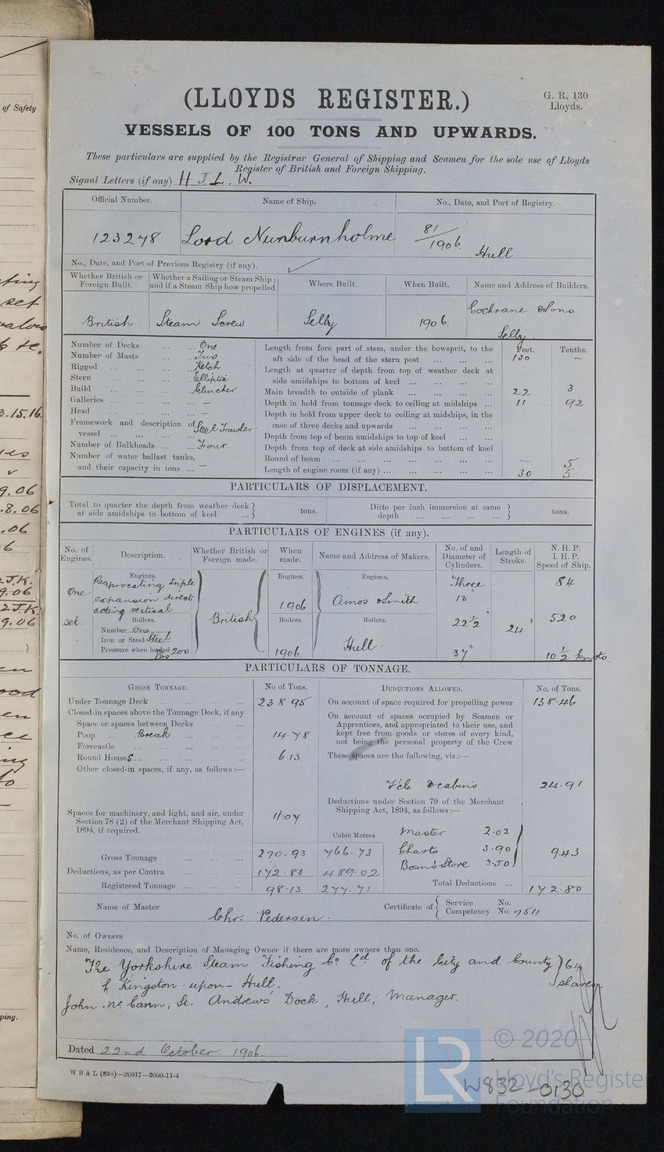 of Safety
(LLOYDS REGISTER.)
G. R. 130
Lloyds.
VESSELS OF 100 TONS AND UPWARDS.
These particulars are supplied by the Registrar General of Shipping and Seamen for the sole use of Lloyds
Register of British and Foreign Shipping.
Signal Letters (if any) H J. L. W.
Official Number. Name of Ship. No., Date, and Port of Registry.
123278 Lord Nunburnholme 81/1906 Hull
No., Date, and Port of Previous Registry (if any).
Whether British or Foreign Built. Whether a Sailing or Steam Ship; and if a Steam Ship how propelled. Where Built. When Built. Name and Address of Builders.
British Steam Screw Selby 1906. Cochrane & Sons Selby.
Number of Decks ... One
Number of Masts ... Two
Rigged ... Ketch
Stern ... Elliptic
Build ... Clencher
Galleries ... —
Head ... —
Framework and description of vessel ... Steel Trawler
Number of Bulkheads ... Four
Number of water ballast tanks,
and their capacity in tons ... —
Feet. Tenths.
Length from fore part of stem, under the bowsprit, to the
aft side of the head of the stern post ... 130 —
Length at quarter of depth from top of weather deck at
side amidships to bottom of keel ...
Main breadth to outside of plank ... 22 3
Depth in hold from tonnage deck to ceiling at midships ... 11 92
Depth in hold from upper deck to ceiling at midships, in the
case of three decks and upwards ...
Depth from top of beam amidships to top of keel ...
Depth from top of deck at side amidships to bottom of keel
Round of beam ... — 5
Length of engine room (if any) ... 30 5
PARTICULARS OF DISPLACEMENT.
Total to quarter the depth from weather deck
at side amidships to bottom of keel ... } tons. Ditto per inch immersion at same
depth ... } tons.
PARTICULARS OF ENGINES (if any).
No. of Engines. Description. Whether British or Foreign made. When made. Name and Address of Makers. No. of and Diameter of Cylinders. Length of Stroke. N.H.P. I.H.P. Speed of Ship.
Engines. Engines. Engines.
One set. Reciprocating triple expansion direct acting vertical British 1906 Amos & Smith Three 84
Boilers. Boilers. Boilers. 22½ 24" 520
Number One
Iron or Steel Steel
Pressure when loaded 200 lbs 1906. Hull. 37" 10½ knots
PARTICULARS OF TONNAGE.
GROSS TONNAGE. No of Tons. DEDUCTIONS ALLOWED. No. of Tons.
Under Tonnage Deck ... 238.95
Closed-in spaces above the Tonnage Deck, if any
Space or spaces between Decks
Poop ... Break ... 14.78
Forecastle ...
Round Houses ... 6.13
Other closed-in spaces, if any, as follows:—
Spaces for machinery, and light, and air, under
Section 78 (2) of the Merchant Shipping Act,
1894, if required. 11.07
Cubic Metres
Gross Tonnage ... 270.93 766.73
Deductions, as per Contra ... 172.80 489.02
Registered Tonnage ... 98.13 277.71
On account of space required for propelling power 138.46
On account of spaces occupied by Seamen or
Apprentices, and appropriated to their use, and
kept free from goods or stores of every kind,
not being the personal property of the Crew
These spaces are the following, viz:—
Fcle & cabins 24.91
Deductions under Section 79 of the Merchant
Shipping Act, 1894, as follows:—
Master 2.03
Charts 3.90
Bosn's Store 3.50 } 9.43
Total Deductions ... 172.80
Name of Master Chr. Pedersen. Certificate of { Service No.
Competency No. 7511
No. of Owners
Name, Residence, and Description of Managing Owner if there are more owners than one.
The Yorkshire Steam Fishing Co Ld of the City and County } 64
of Kingston-upon-Hull. shares
John McCann, St. Andrews' Dock, Hull, Manager.
Dated 22nd October 1906.
W B & L (83o)—20917—2000-11-4
LR
© 2020
Lloyd's Register
Foundation
W832-0130